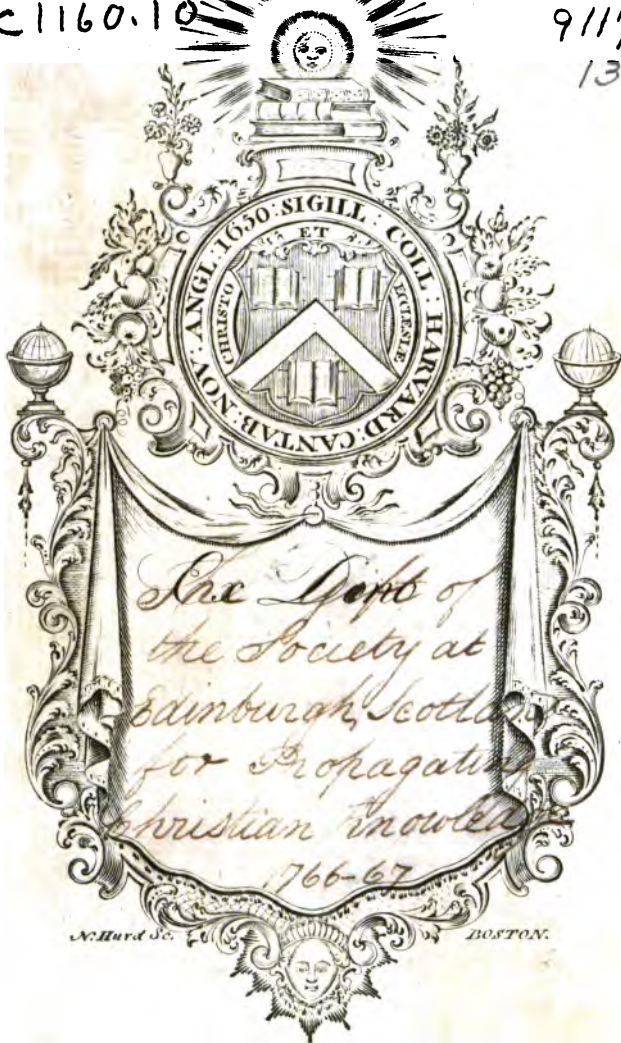 C1160.10
911
13
SIGILL : COLL : HARVARD : CANTAB : NOV : ANGL : 1650 :
ET
CHRISTO
ECCLESIÆ
The Gift of
the Society at
Edinburgh, Scotland
for Propagating
Christian Knowledge
1766-67
N. Hurd Sc.
BOSTON.